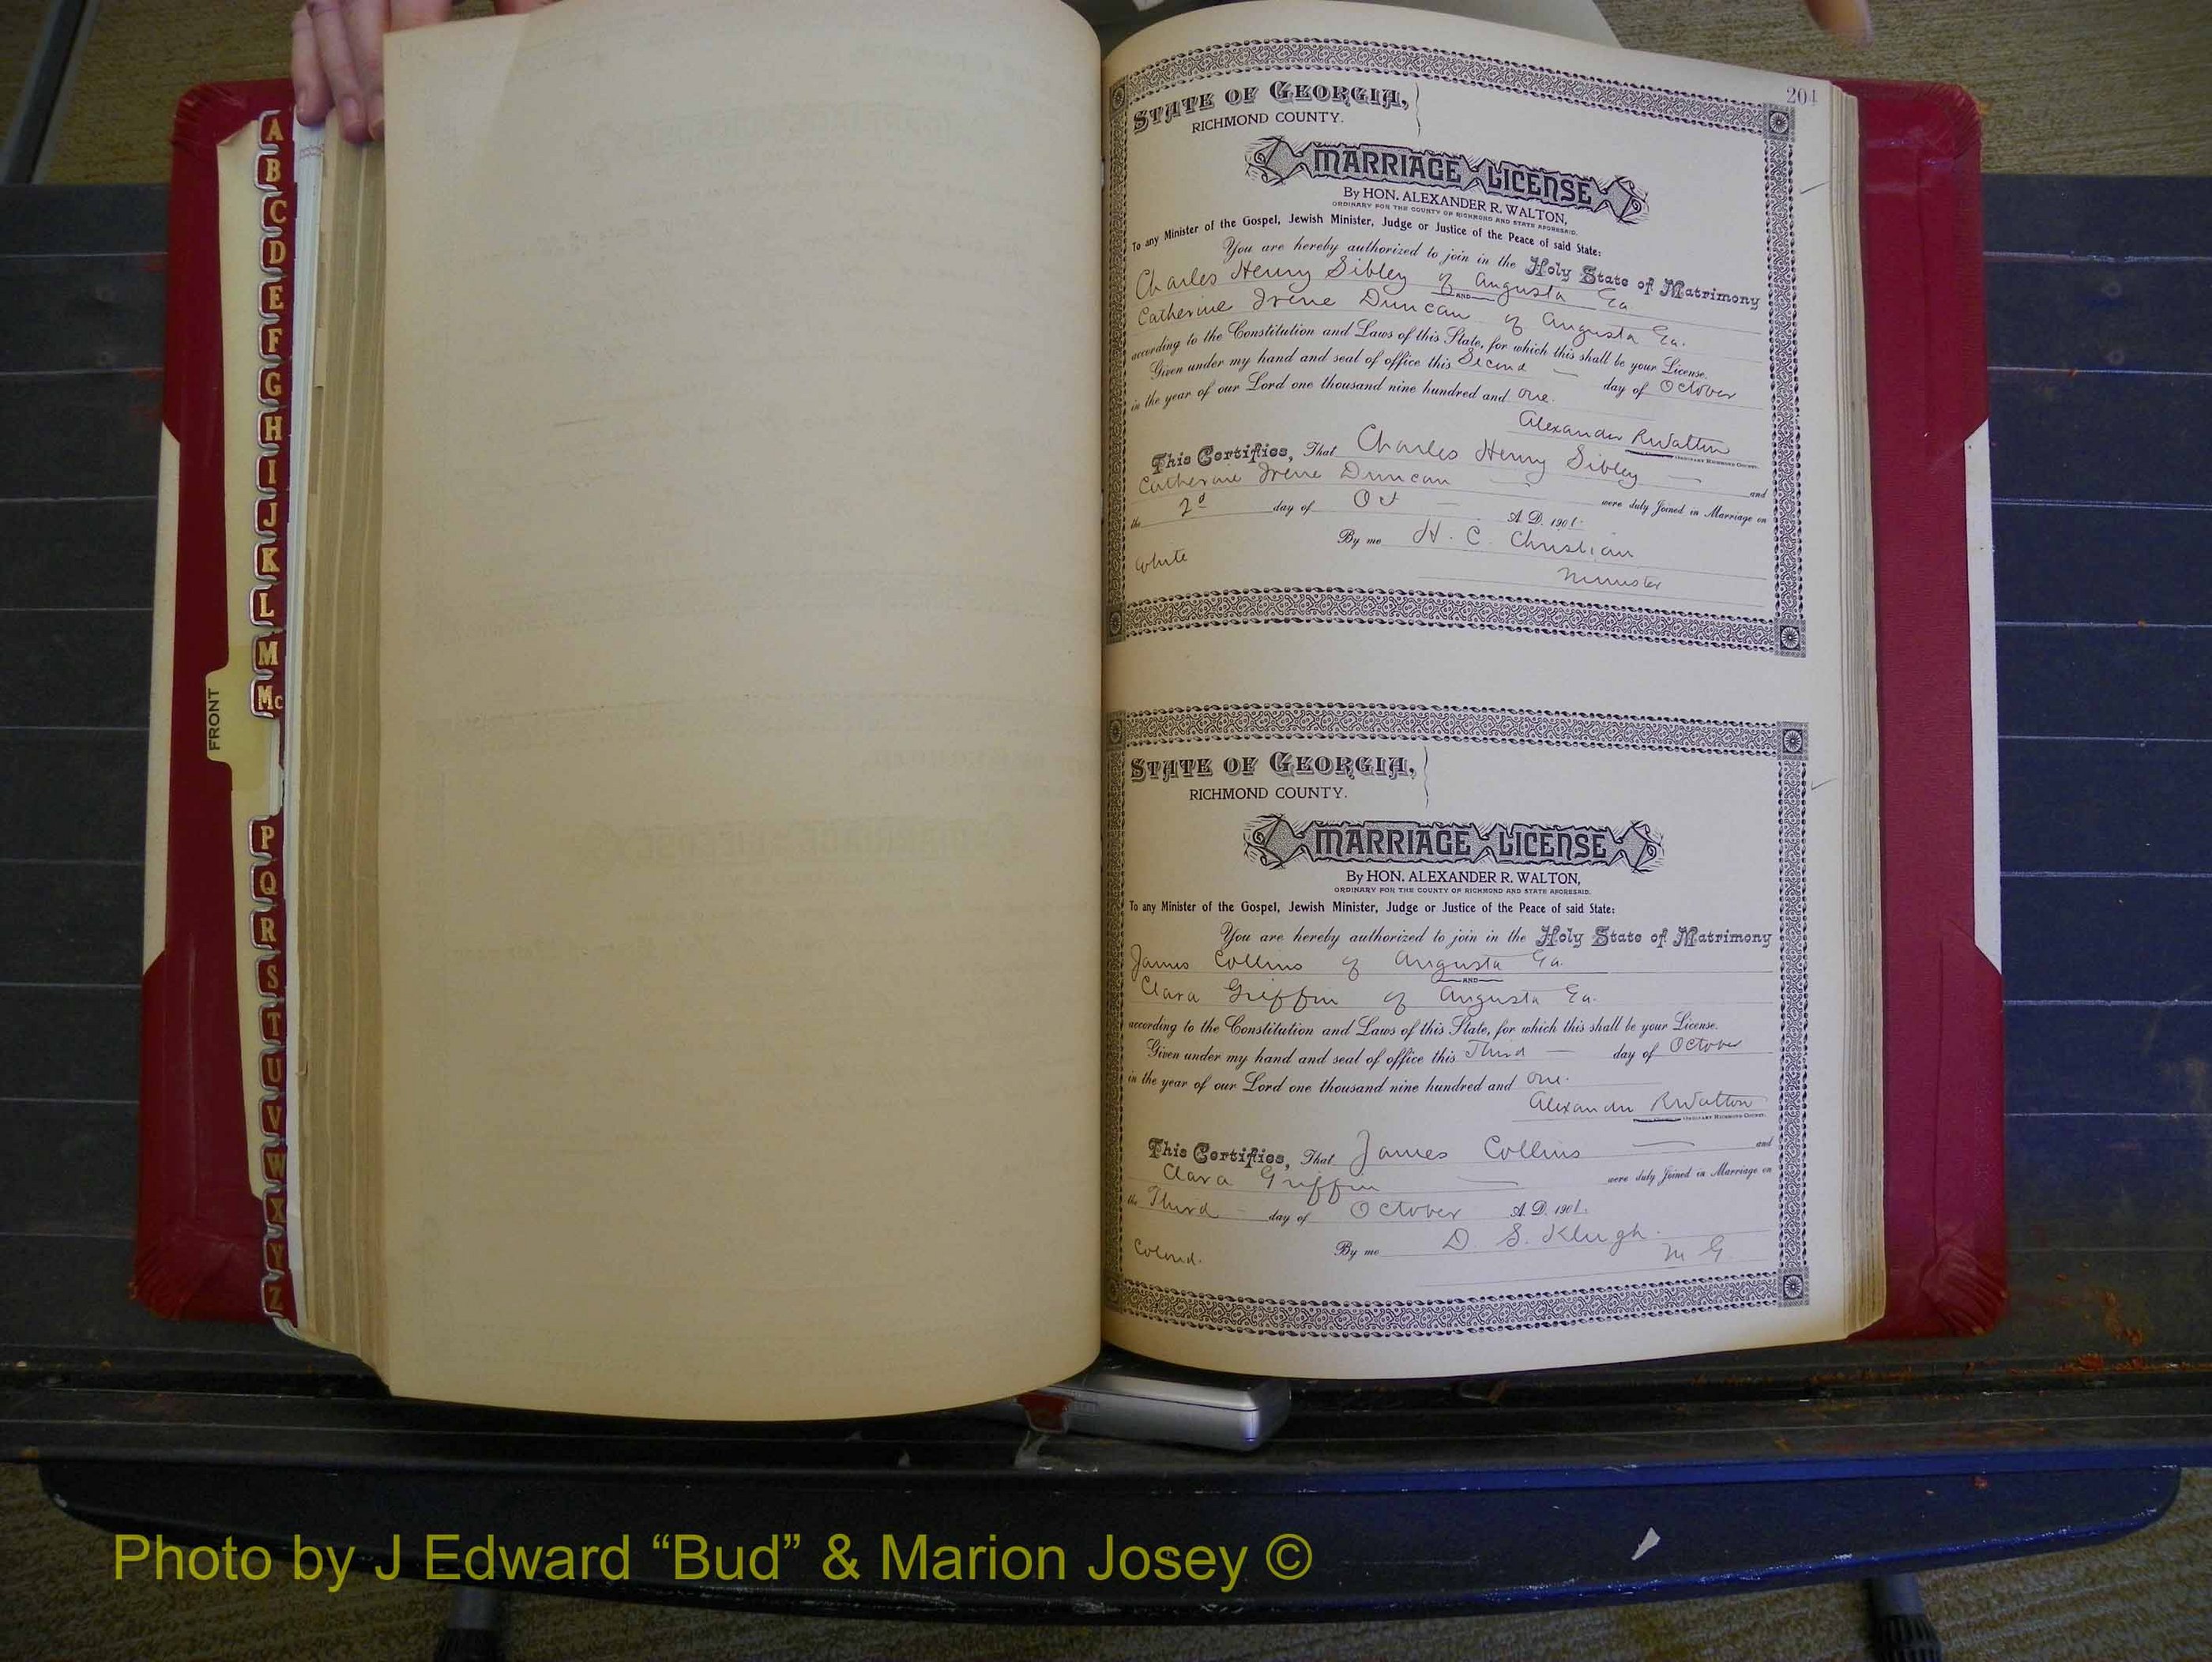 A
B
C
D
E
F
G
H
I
J
K
L
M
Mc
FRONT
P
Q
R
S
T
U
V
W
X
Y
Z
204
STATE OF GEORGIA,
RICHMOND COUNTY.
MARRIAGE LICENSE
By HON. ALEXANDER R. WALTON,
ORDINARY FOR THE COUNTY OF RICHMOND AND STATE AFORESAID.
To any Minister of the Gospel, Jewish Minister, Judge or Justice of the Peace of said State:
You are hereby authorized to join in the Holy State of Matrimony
Charles Henry Sibley of Augusta Ga
AND
Catherine Irene Duncan of Augusta Ga.
according to the Constitution and Laws of this State, for which this shall be your License.
Given under my hand and seal of office this Second day of October
in the year of our Lord one thousand nine hundred and one.
Alexander R Walton
ORDINARY RICHMOND COUNTY.
This Certifies, That Charles Henry Sibley and
Catherine Irene Duncan were duly Joined in Marriage on
the 2d day of Oct A. D. 1901.
By me H. C. Christian
White
Minister
STATE OF GEORGIA,
RICHMOND COUNTY.
MARRIAGE LICENSE
By HON. ALEXANDER R. WALTON,
ORDINARY FOR THE COUNTY OF RICHMOND AND STATE AFORESAID.
To any Minister of the Gospel, Jewish Minister, Judge or Justice of the Peace of said State:
You are hereby authorized to join in the Holy State of Matrimony
James Collins of Augusta Ga.
AND
Clara Griffin of Augusta Ga.
according to the Constitution and Laws of this State, for which this shall be your License.
Given under my hand and seal of office this Third day of October
in the year of our Lord one thousand nine hundred and one.
Alexander R Walton
ORDINARY RICHMOND COUNTY.
This Certifies, That James Collins and
Clara Griffin were duly Joined in Marriage on
the Third day of October A. D. 1901.
Colored. By me D. S. Klugh.
M G.
Photo by J Edward “Bud” & Marion Josey ©